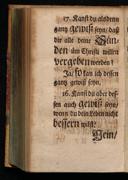 17. Kanst du alsdenn
gantz gewiß seyn / daß
dir alle deine Sün-
den um Christi willen
vergeben werden?
Ja / so kan ich dessen
gantz gewiß seyn.
18. Kanst du aber des-
sen auch gewiß seyn /
wenn du dein Leben nicht
bessern wilst?
Nein /